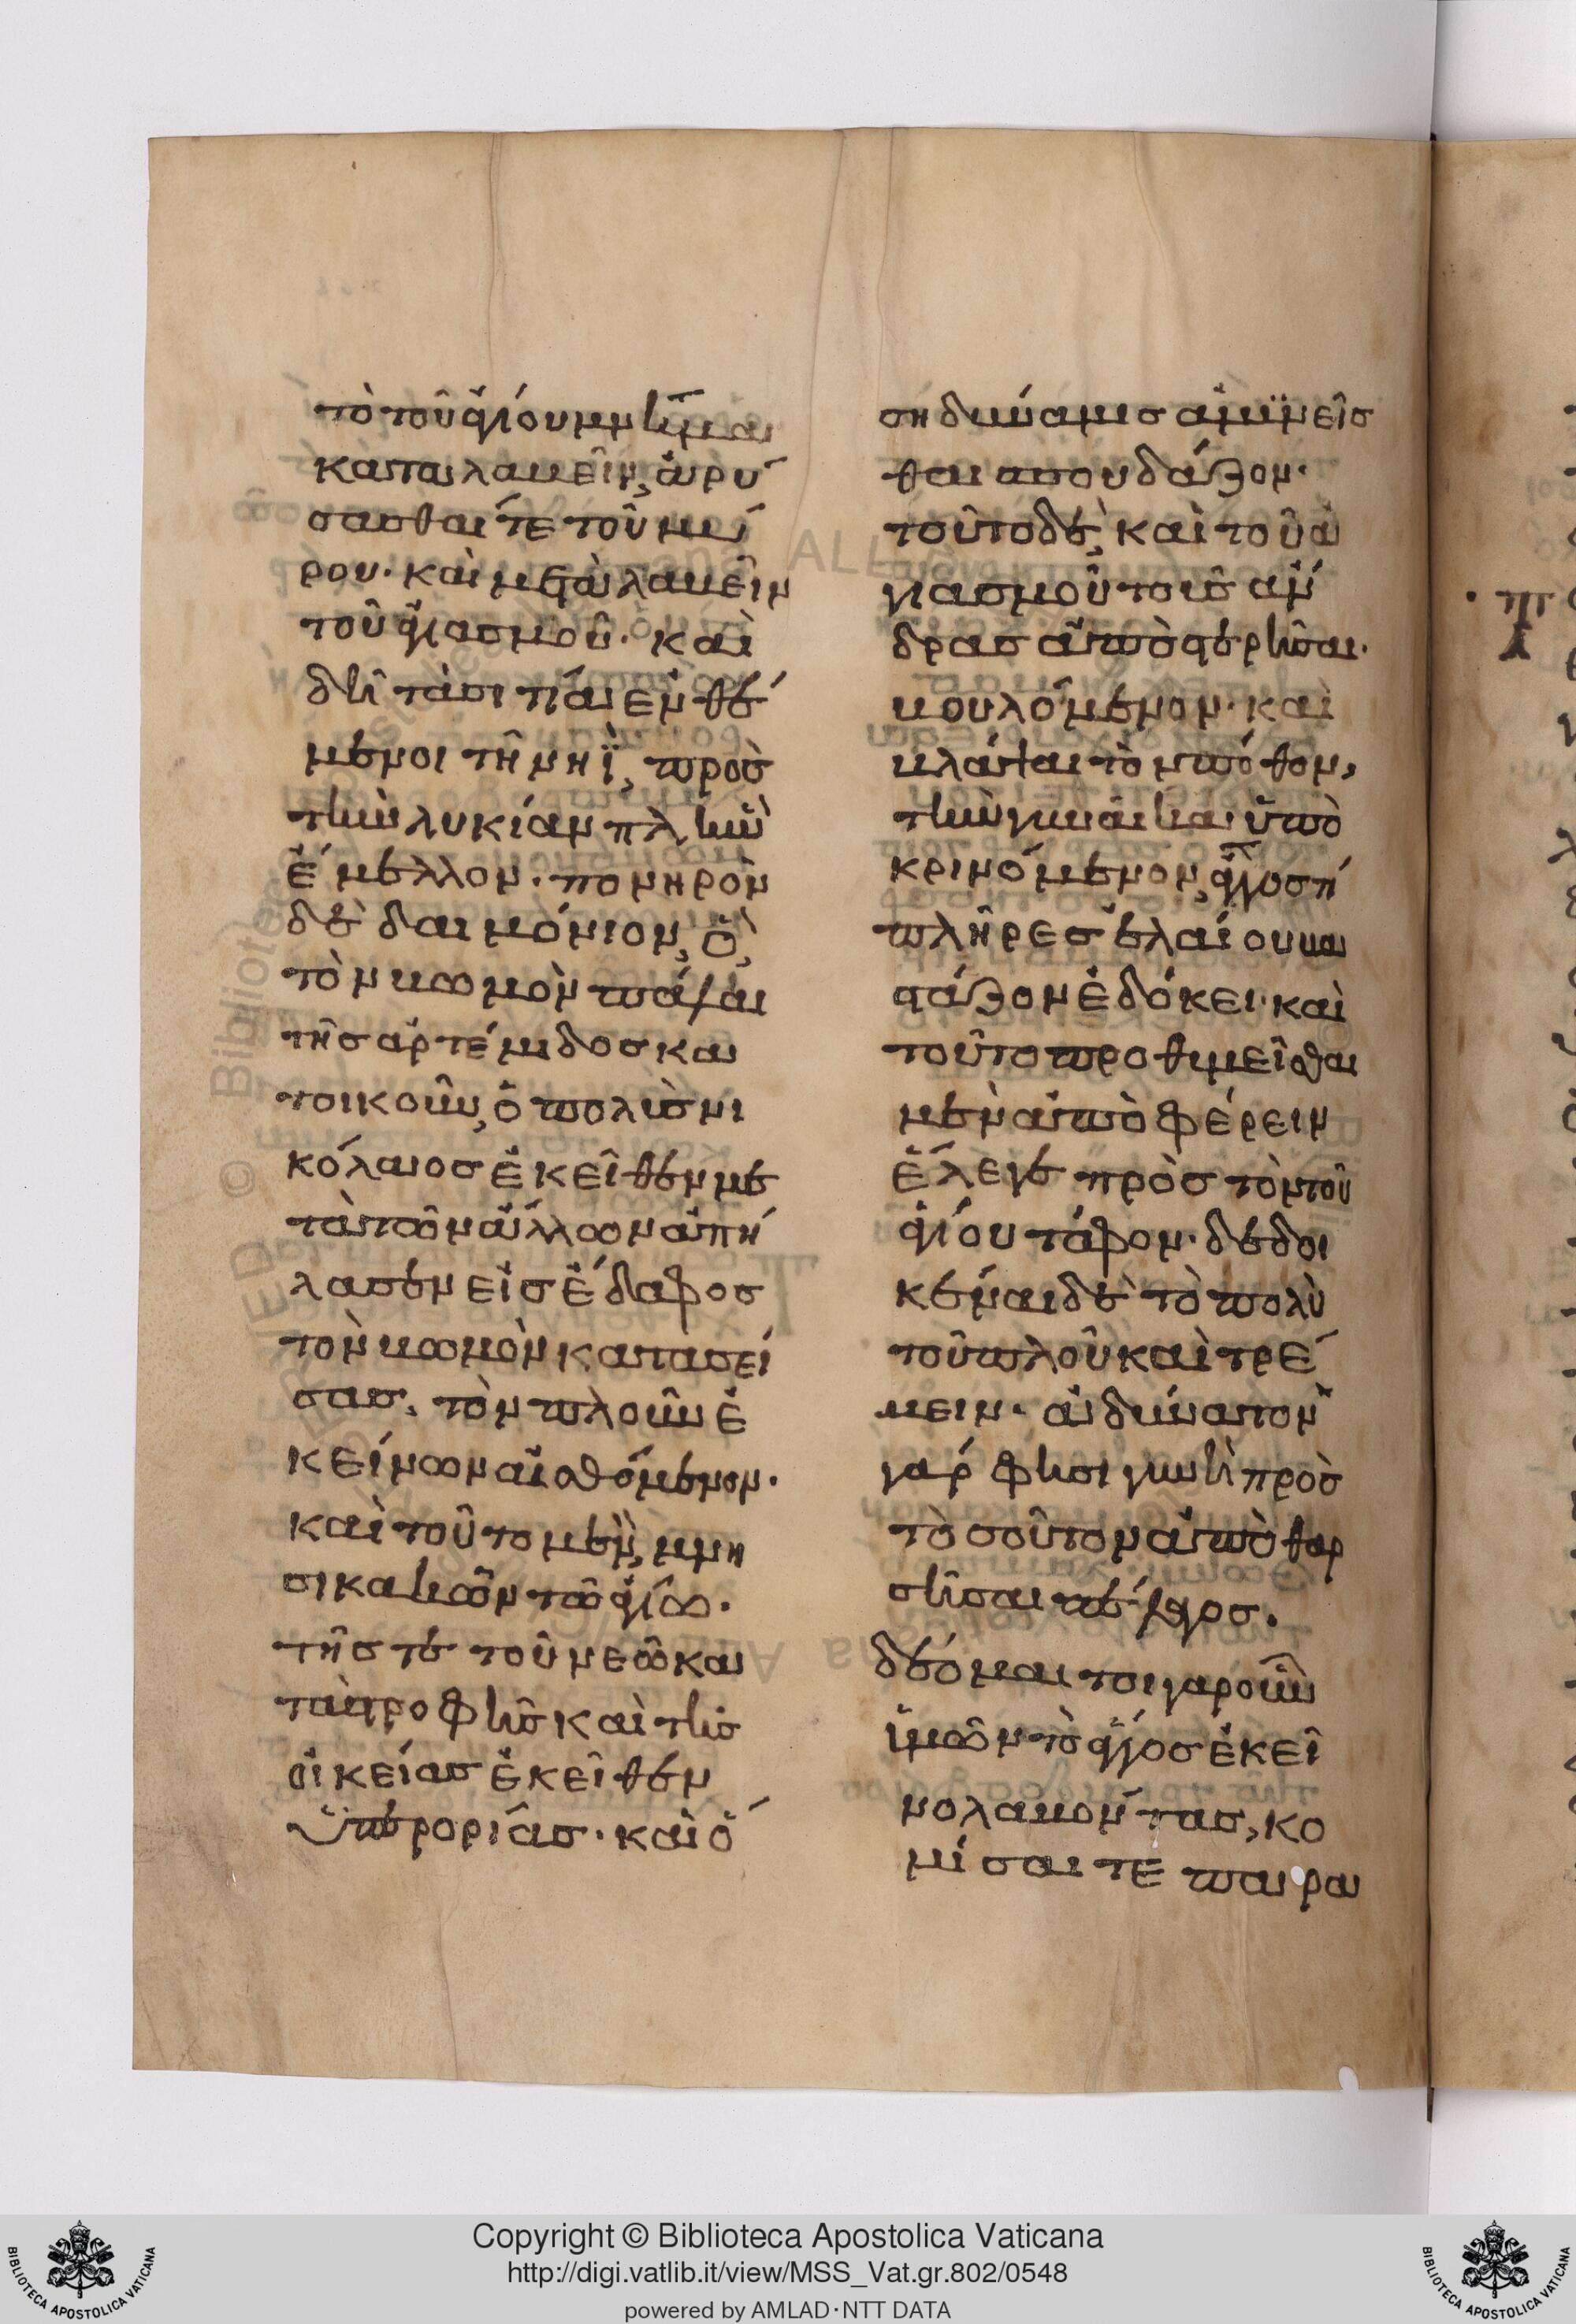 τὸ τοῦ ἁγίου μνῆμα
καταλαβεῖν, ἀρύ
σασθαί τε τοῦ μύ
ρου· καὶ μεταλαβεῖν
τοῦ ἁγιασμοῦ· καὶ
δὴ τὰ σιτία ἐνθέ
μενοι τῆ νηῒ, πρὸς
τὴν λυκίαν πλεῖν
ἔμελλον· πονηρὸν
δὲ δαιμόνιον, ὃ,
τὸν βωμὸν πάλαι
τῆς ἀρτέμιδος κα
τοικοῦν, ὁ πολὺς νι
κόλαος ἐκεῖθεν με
τὰ τῶν ἄλλων ἀπή
λασεν εἰς ἔδαφος
τὸν βωμὸν κατασεί
σας, τὸν πλοῦν ἐ
κείνων αἰσθόμενον·
καὶ τοῦτο μὲν, μνη
σικακῶν τῶ ἁγίω·
τῆς τε τοῦ νεῶ κα
ταστροφῆς καὶ τῆς
οἰκείας ἐκεῖθεν
ὑπερορίας· καὶ ὅ
ση δύναμις ἀμύνεῖσ
θαι σπουδάζον·
τοῦτο δὲ, καὶ τοῦ ἁ
γιασμοῦ τοὺς ἄν
δρας ἀποστερῆσαι·
βουλόμενον· καὶ
βλάψαι τὸν πόθον,
τὴν γυναῖκα ὑπο
κρινόμενον, ἄγγος τι
πλῆρες ἐλαίου βα
στάζον ἐδόκει· καὶ
τοῦτο προθυμεῖσθαι
μὲν ἀποφέρειν
ἔλεγε πρὸς τὸν τοῦ
ἁγίου τάφον· δεδοι
κέναι δὲ τὸ πολὺ
τοῦ πλοῦ καὶ τρέ
μειν· ἀδύνατον
γάρ φησι γυνὴ πρὸς
τοσοῦτον ἀποθαρ
σῆσαι πέλαγος·
δέομαι τοιγαροῦν
ὑμῶν τὸ ἄγγος ἐκεῖ
νο λαβόντας, κο
μίσαι τε παρα
Copyright © Biblioteca Apostolica Vaticana
http://digi.vatlib.it/view/MSS_Vat.gr.802/0548
powered by AMLAD·NTT DATA